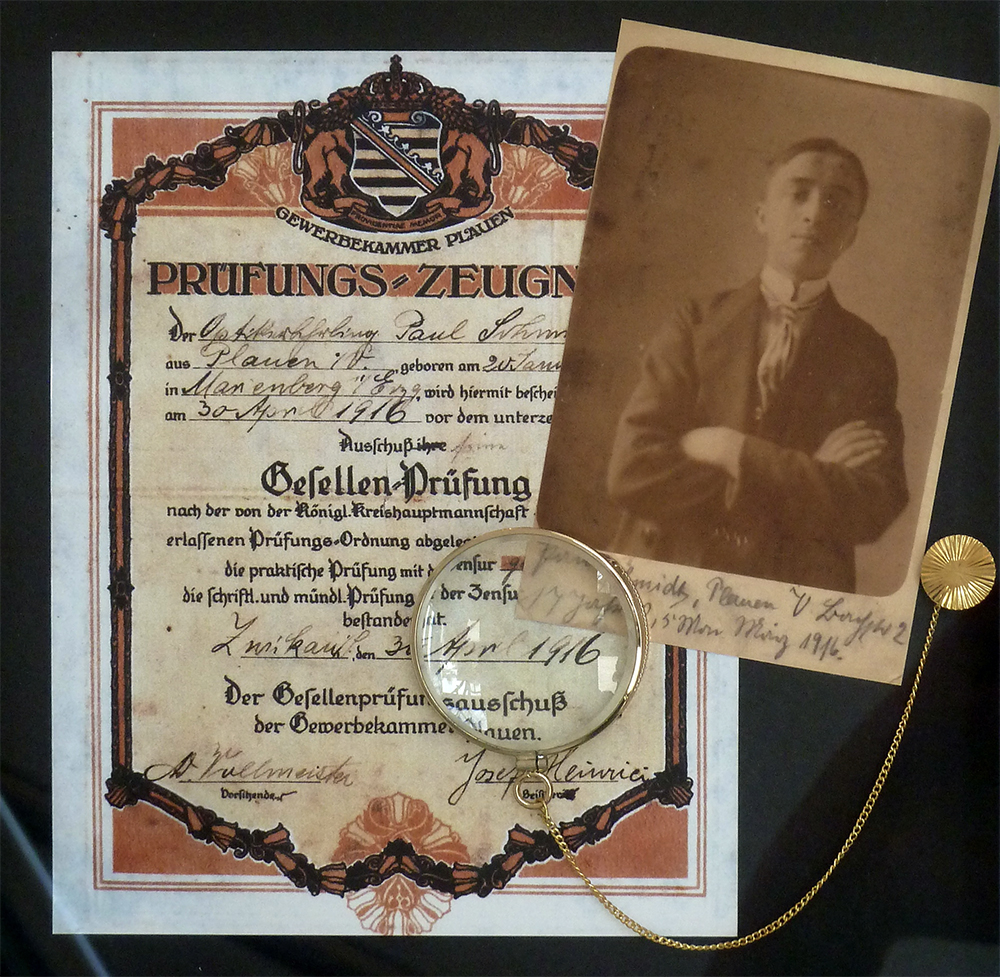 PROVIDENTIAE MEMOR
GEWERBEKAMMER PLAUEN
PRÜFUNGS-ZEUGN
Der Optikerlehrling Paul Schm
aus Plauen i. V. geboren am 20. Janu
in Marienberg i/Erzg. wird hiermit beschei
am 30 April 1916 vor dem unterze
Ausschuß ihre seine
Gesellen-Prüfung
nach der von der Königl. Kreishauptmannschaft
erlassenen Prüfungs-Ordnung abgeleg
die praktische Prüfung mit d ensur
die schriftl. und mündl. Prüfung der Zensu
bestanden at.
Zwickau, den 30 April 1916
Der Gesellenprüfungsausschuß
der Gewerbekammer Plauen.
Vollmeister Josef Heinrici
Vorsitzender Beisitzer
midt, Plauen V
17 Jah 5 Mon März 1916.